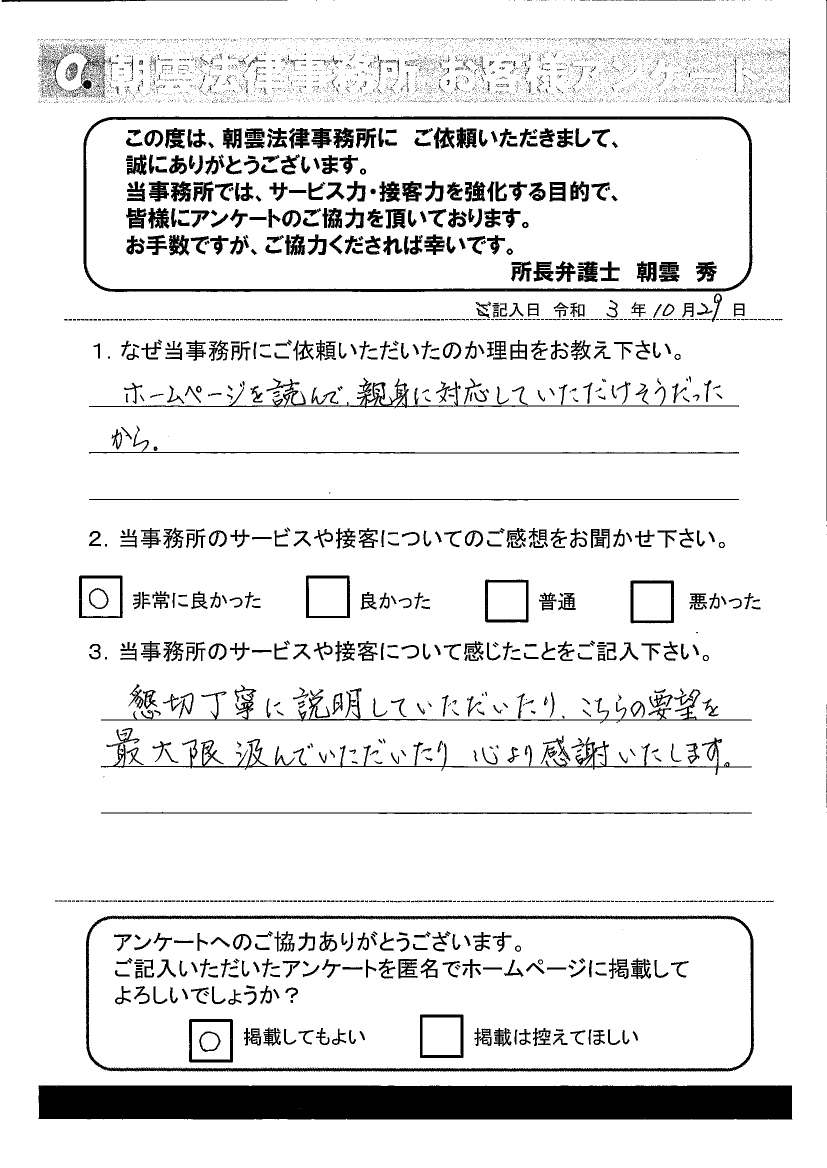 a. 朝雲法律事務所 お客様アンケート
この度は、朝雲法律事務所に ご依頼いただきまして、
誠にありがとうございます。
当事務所では、サービス力・接客力を強化する目的で、
皆様にアンケートのご協力を頂いております。
お手数ですが、ご協力くだされば幸いです。
所長弁護士 朝雲 秀
ご記入日 令和 3 年 10 月 29 日
1. なぜ当事務所にご依頼いただいたのか理由をお教え下さい。
ホームページを読んで、親身に対応していただけそうだった
から。
2. 当事務所のサービスや接客についてのご感想をお聞かせ下さい。
○ 非常に良かった 良かった 普通 悪かった
3. 当事務所のサービスや接客について感じたことをご記入下さい。
懇切丁寧に説明していただいたり、こちらの要望を
最大限汲んでいただいたり 心より感謝いたします。
アンケートへのご協力ありがとうございます。
ご記入いただいたアンケートを匿名でホームページに掲載して
よろしいでしょうか?
○ 掲載してもよい 掲載は控えてほしい